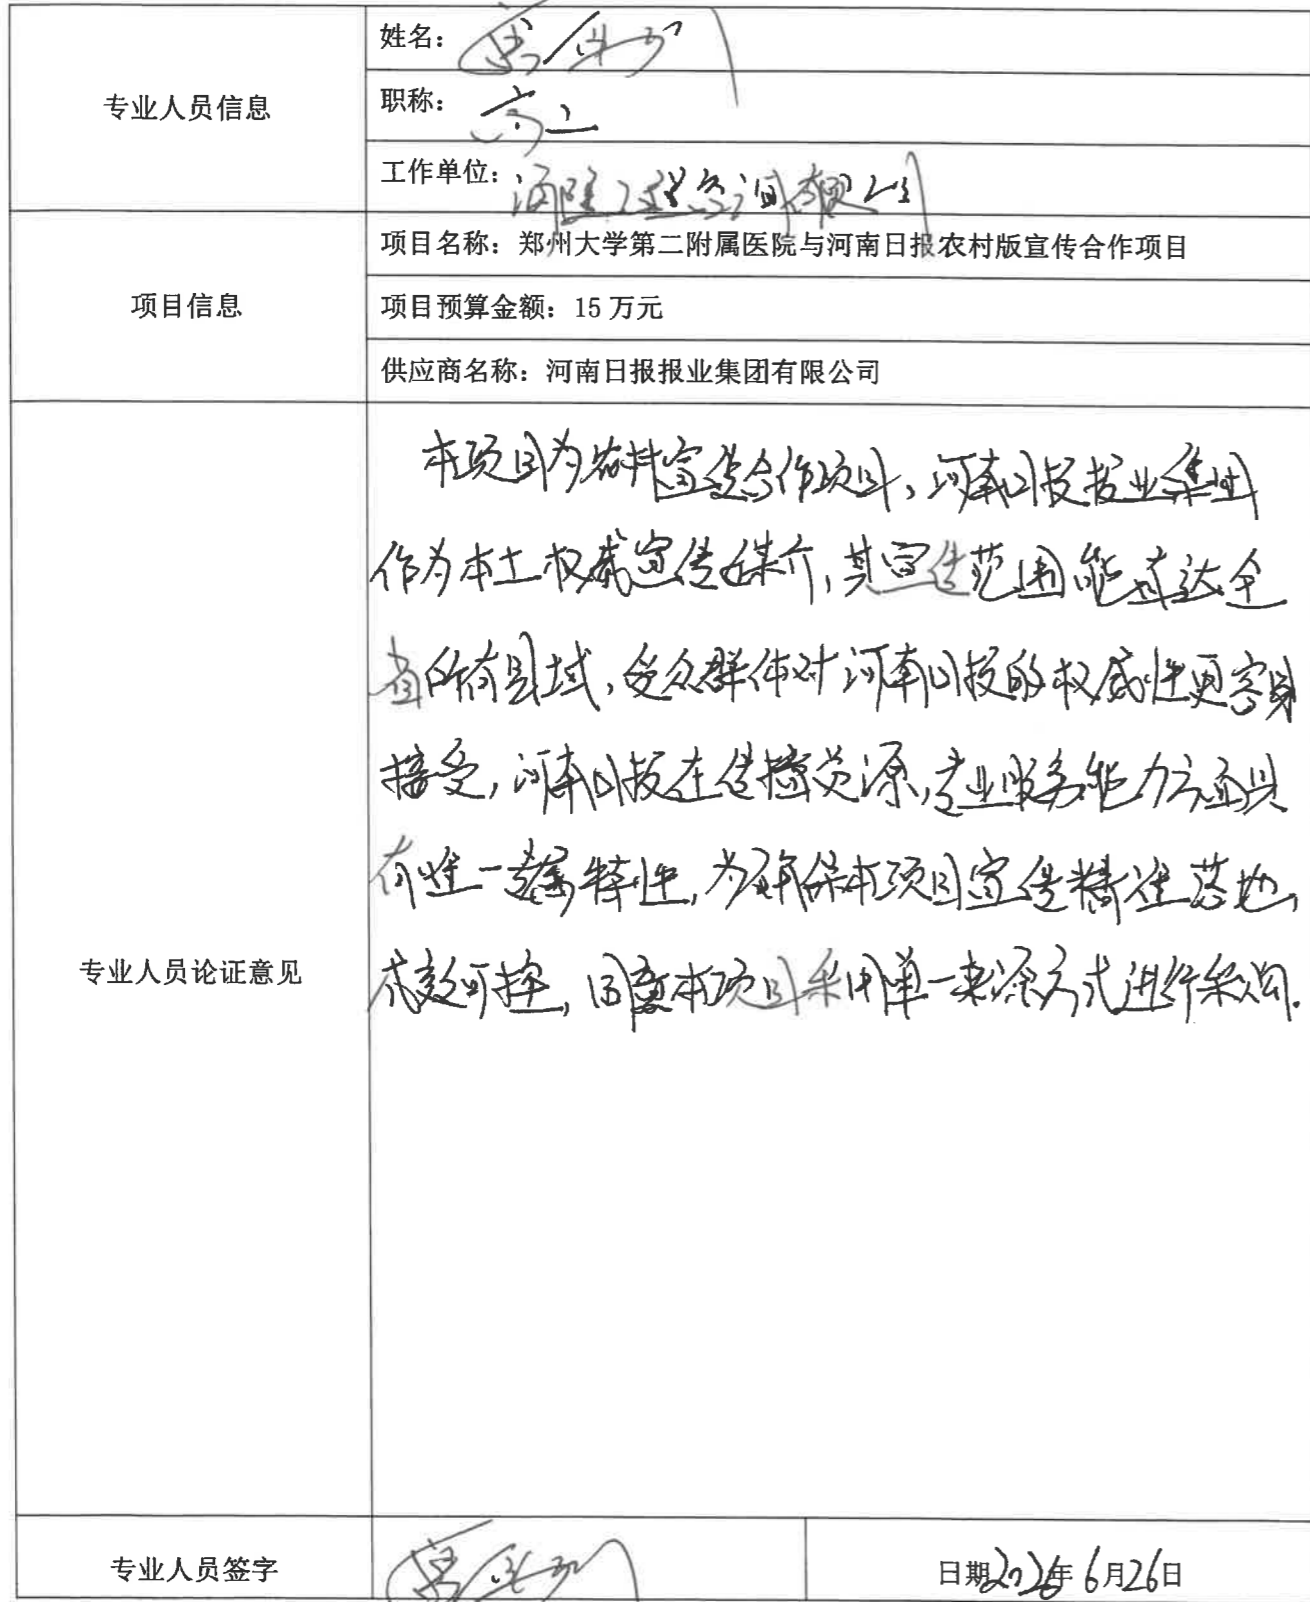 专业人员信息
姓名：
职称：高工
工作单位：
项目信息
项目名称：郑州大学第二附属医院与河南日报农村版宣传合作项目
项目预算金额：15万元
供应商名称：河南日报报业集团有限公司
专业人员论证意见
本项目为农村宣传合作项目，河南日报报业集团
作为本土权威宣传媒介，其宣传范围能直达全
省所有县域，受众群体对河南日报的权威性更容易
接受，河南日报在传播资源，专业服务能力方面具
有唯一专属特性，为确保本项目宣传精准落地，
成效可控，同意本项目采用单一来源方式进行采购.
专业人员签字
日期2026年6月26日